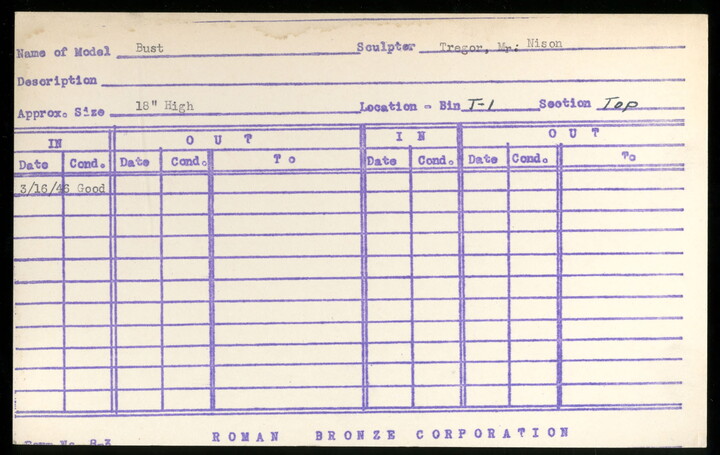 Name of Model Bust Sculptor Tregor, Mr. Nison
Description
Approx. Size 18" High Location - Bin T-1 Section Top
IN OUT IN OUT
Date Cond. Date Cond. To Date Cond. Date Cond. To
3/16/46 Good
Form No. 8-3 ROMAN BRONZE CORPORATION